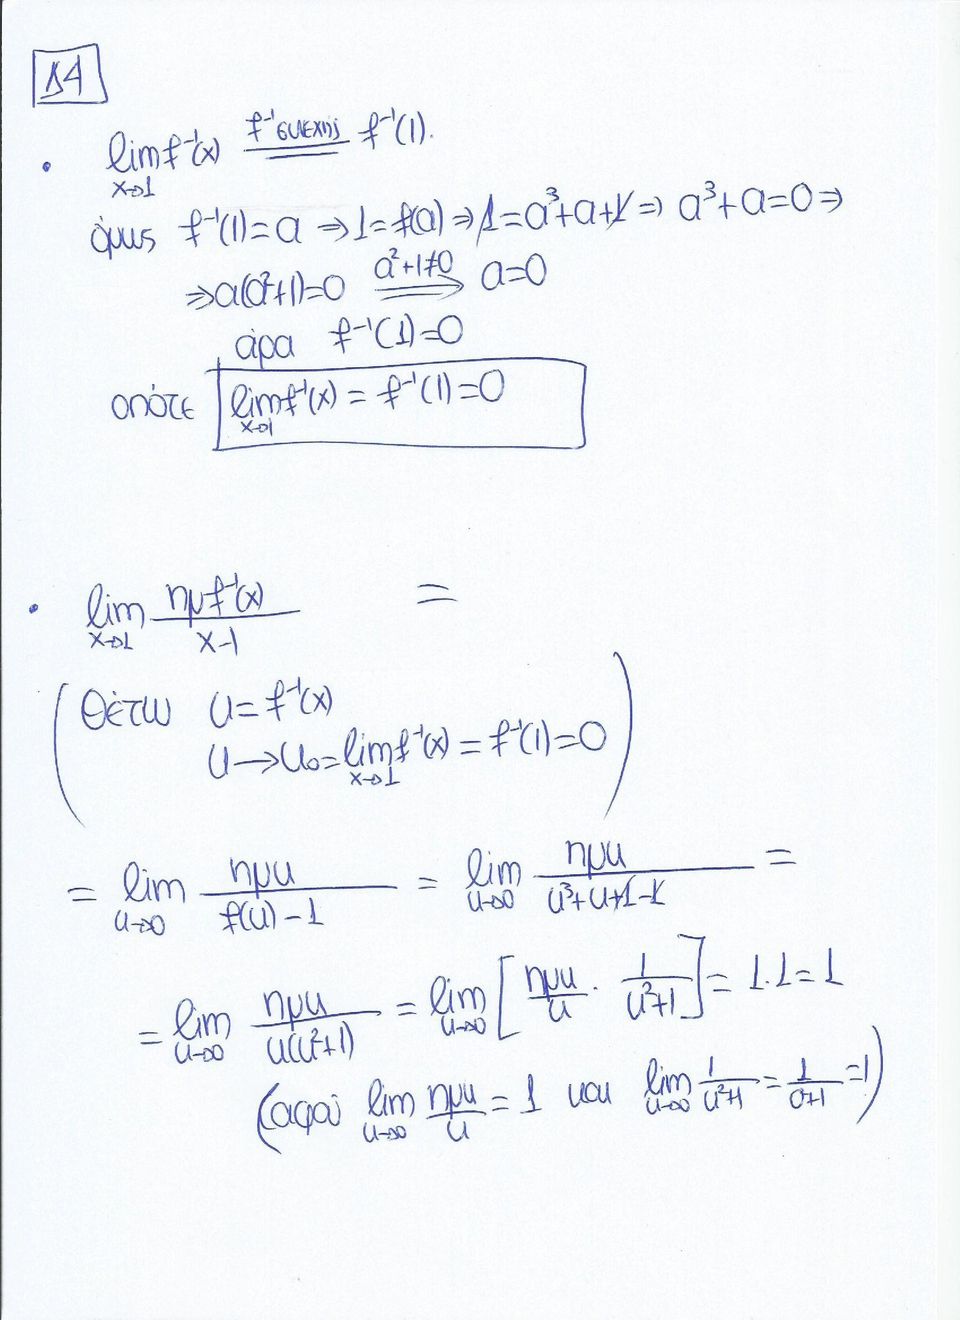 Δ4
• lim_{x→1} f⁻¹(x) =(f⁻¹ συνεχής)= f⁻¹(1).
όμως f⁻¹(1)=a ⇒ 1=f(a) ⇒ 1=a³+a+1 ⇒ a³+a=0 ⇒
⇒ a(a²+1)=0 =(a²+1≠0)⇒ a=0
άρα f⁻¹(1)=0
οπότε lim_{x→1} f⁻¹(x) = f⁻¹(1)=0
• lim_{x→1} ημf⁻¹(x)/(x-1) =
(Θέτω u=f⁻¹(x)
u→u₀=lim_{x→1} f⁻¹(x) = f⁻¹(1)=0)
= lim_{u→0} ημu/(f(u)-1) = lim_{u→0} ημu/(u³+u+1-1) =
= lim_{u→0} ημu/(u(u²+1)) = lim_{u→0} [ημu/u · 1/(u²+1)] = 1.1=1
(αφού lim_{u→0} ημu/u = 1 και lim_{u→0} 1/(u²+1) = 1/(0+1) =1)